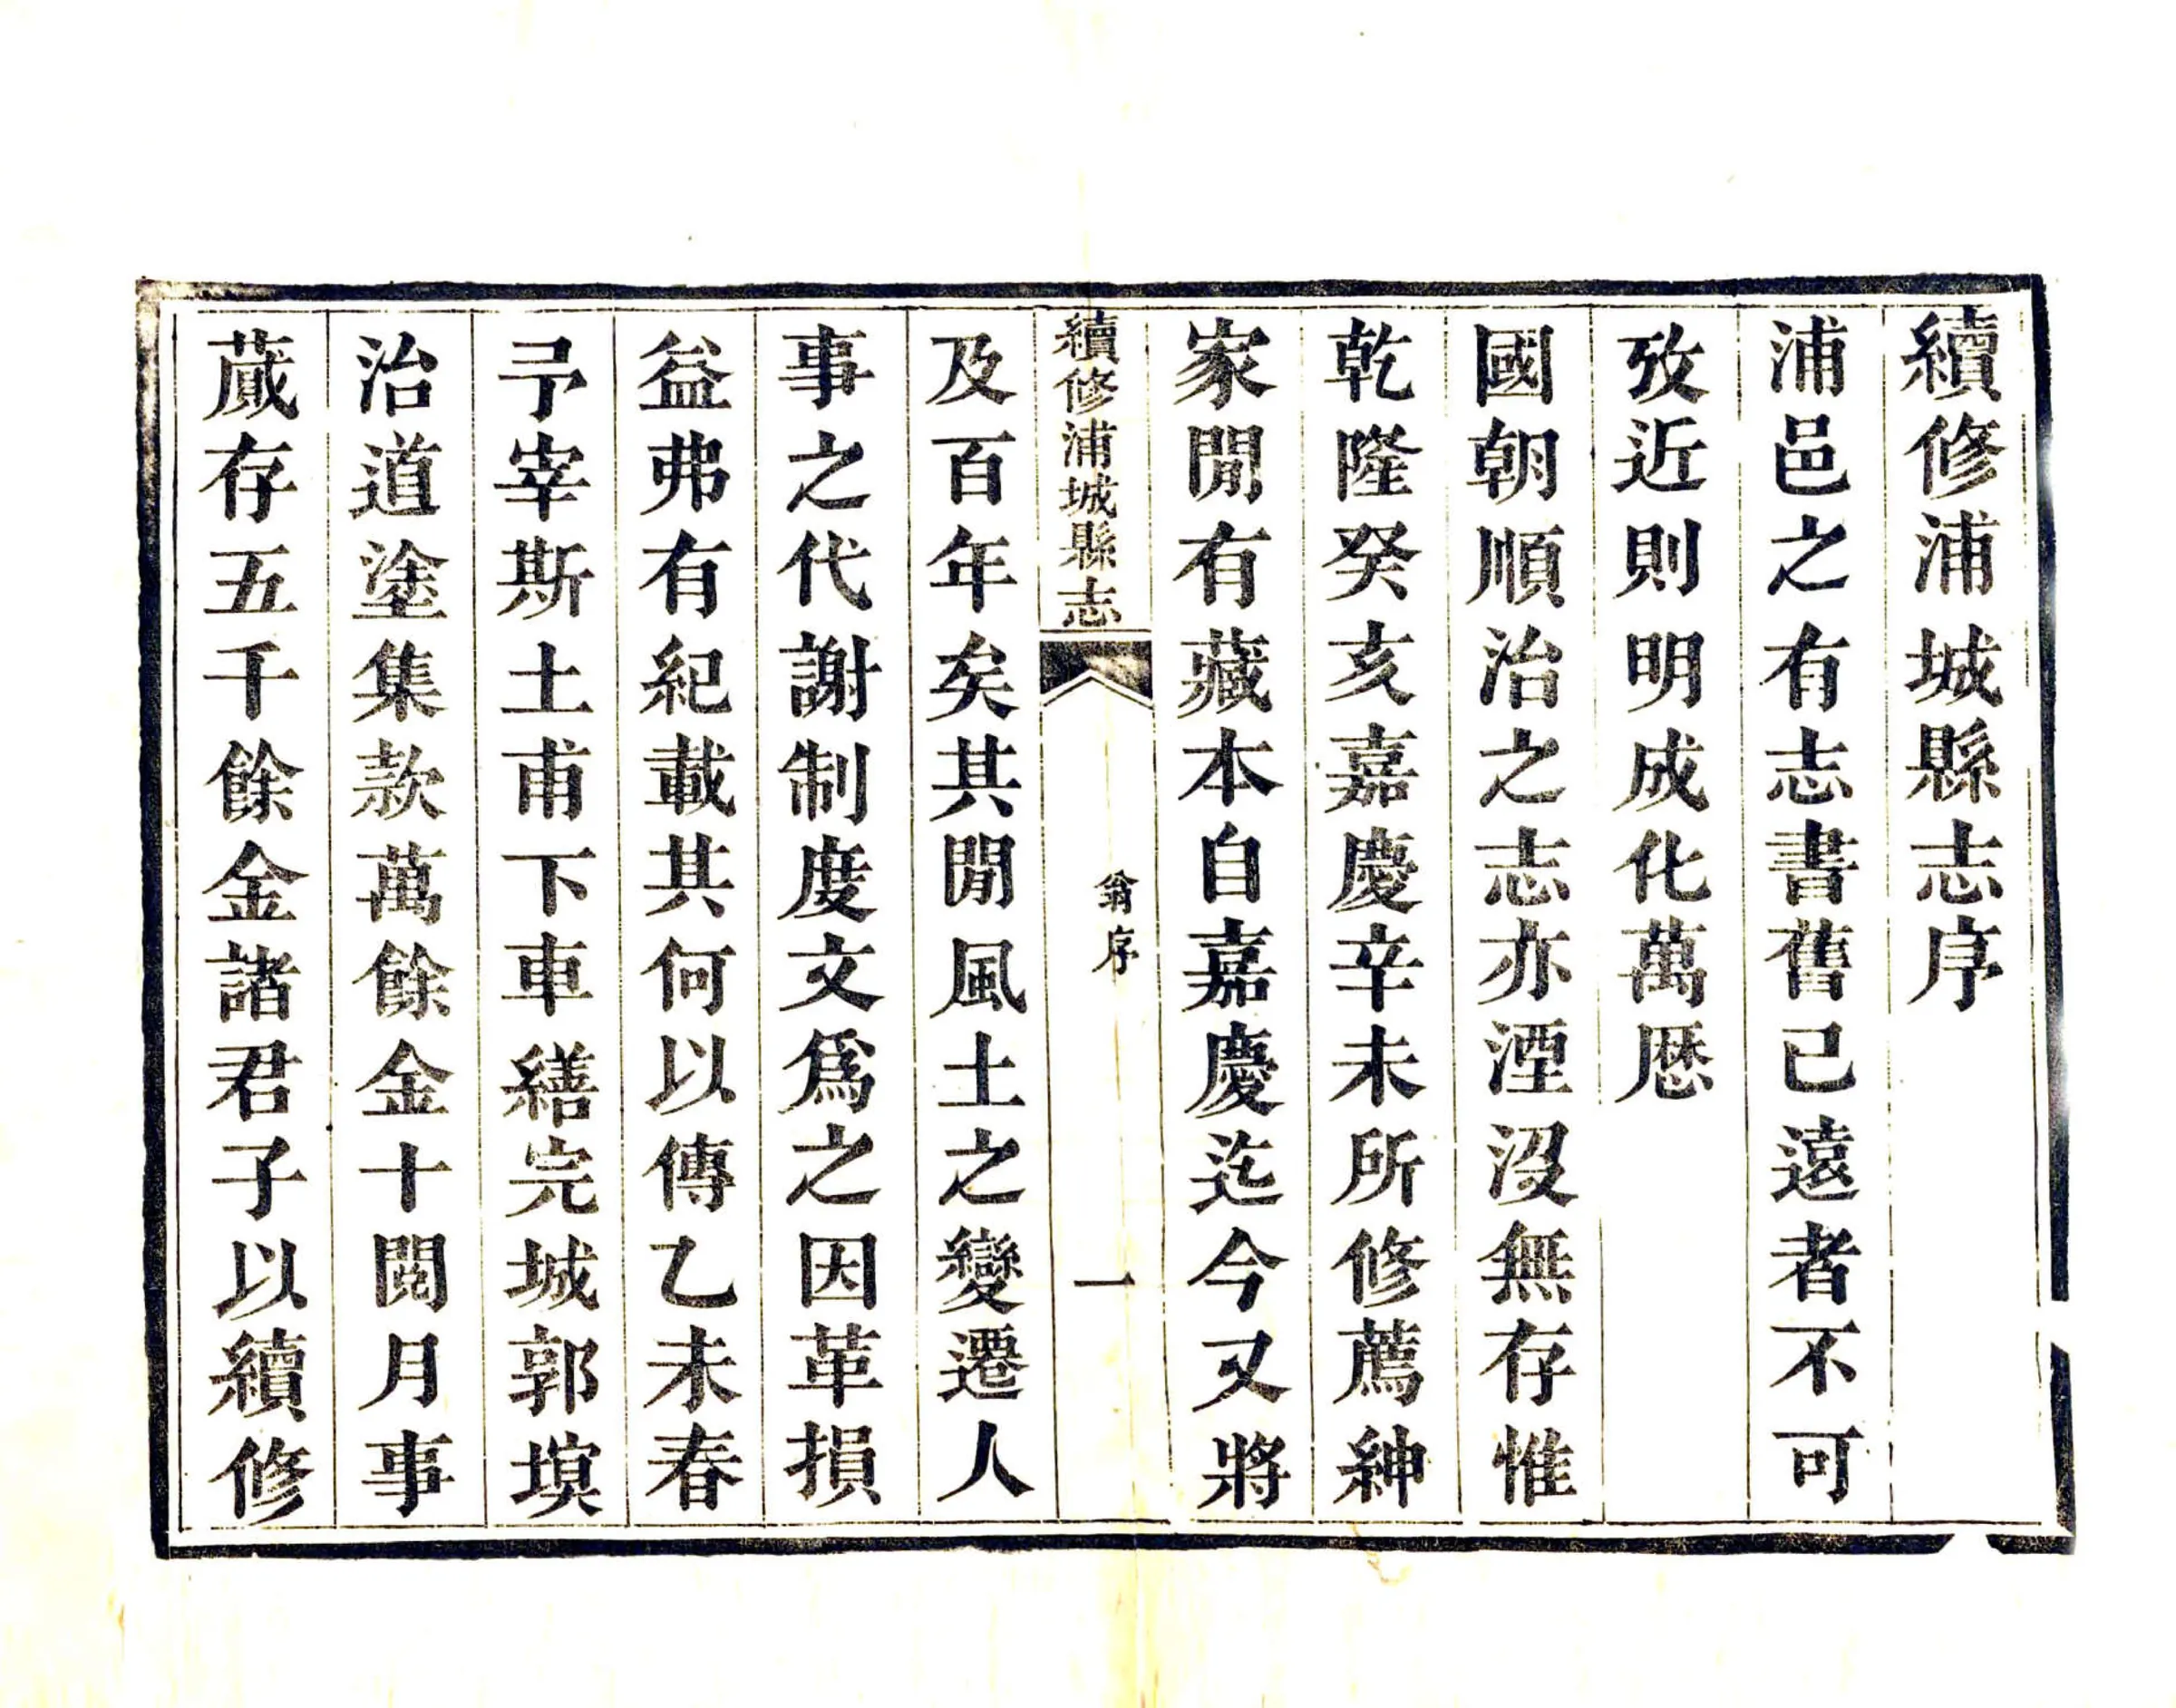 續修浦城縣志序
浦邑之有志書舊已遠者不可
攷近則明成化萬厯
國朝順治之志亦湮沒無存惟
乾隆癸亥嘉慶辛未所修薦紳
家閒有藏本自嘉慶迄今又將
續修浦城縣志
翁序
一
及百年矣其閒風土之變遷人
事之代謝制度文爲之因革損
益弗有紀載其何以傳乙未春
予宰斯土甫下車繕完城郭塡
治道塗集款萬餘金十閱月事
蕆存五千餘金諸君子以續修